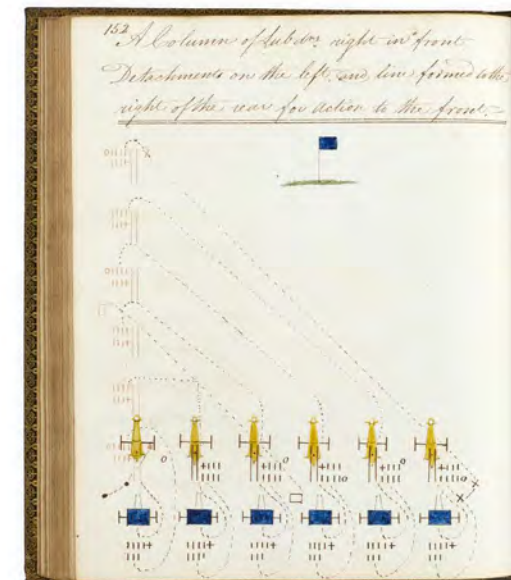 152
A Column of Subdns right in front
Detachments on the left and line formed to the
right of the rear for action to the front.